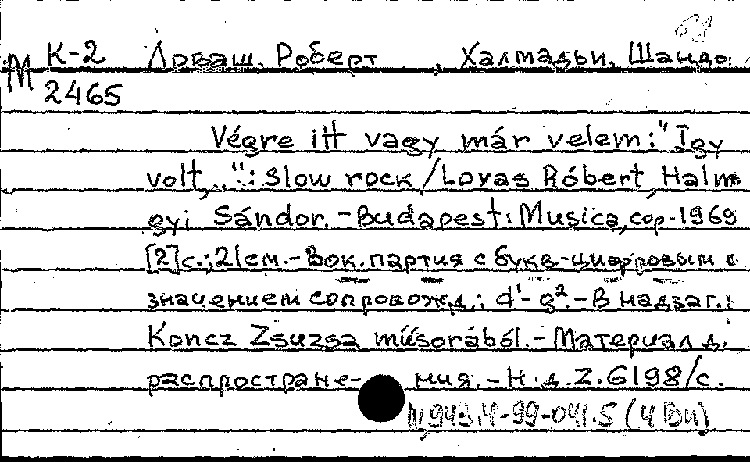 М К-2 Ловаш, Роберт, Халмадьи, Шандо
2465
Végre itt vagy már velem: "Igy
volt,..": Slow rock / Lovas Róbert, Halm
gyi Sándor. - Budapest: Musica, cop. 1969
[2]с.; 21см. - Вок. партия с букв-цифровым о
значением сопровожд.; d¹-g². - В надзаг.:
Koncz Zsuzsa műsorából. - Материал д.
распростране- ния. - Н.д. Z.6198/c.